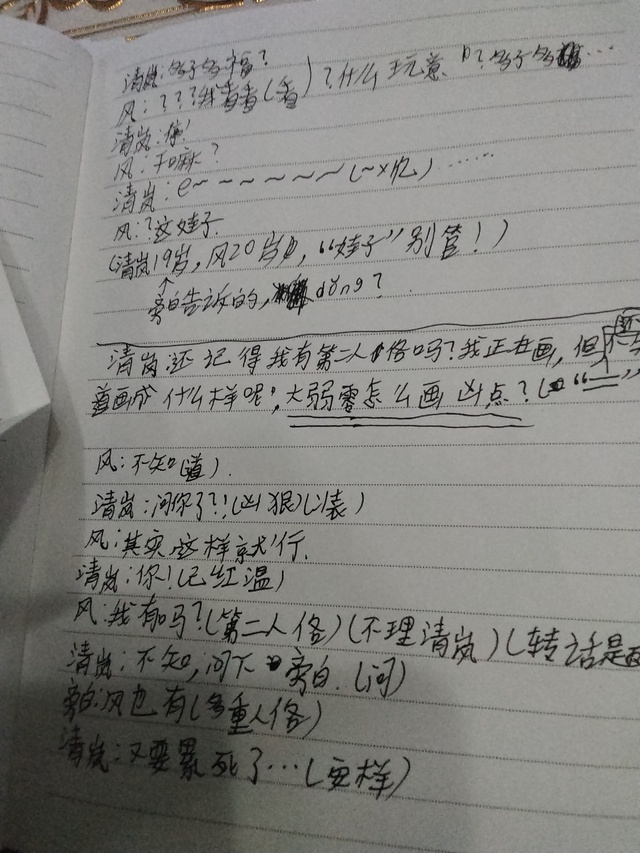 清岚：多子多福？
风：？？？我看看（看）？什么玩意
清岚：
风：干嘛？
清岚：e～～～～～～（～×亿）……
风：？这娃子.
（清岚19岁，风20岁，“娃子”别管！）
旁白告诉的，dǒng？
清岚还记得我有第二人格吗？我正在画，但
画成什么样呢，大弱零怎么画凶点？
风：不知（道）.
清岚：问你了？！（凶狠）（装）
风：其实这样就行.
清岚：你！（已红温）
风：我有吗？（第二人格）（不理清岚）（转话
清岚：不知，问下旁白.（问）
旁白：风也有（多重人格）
清岚：又要累死了…（